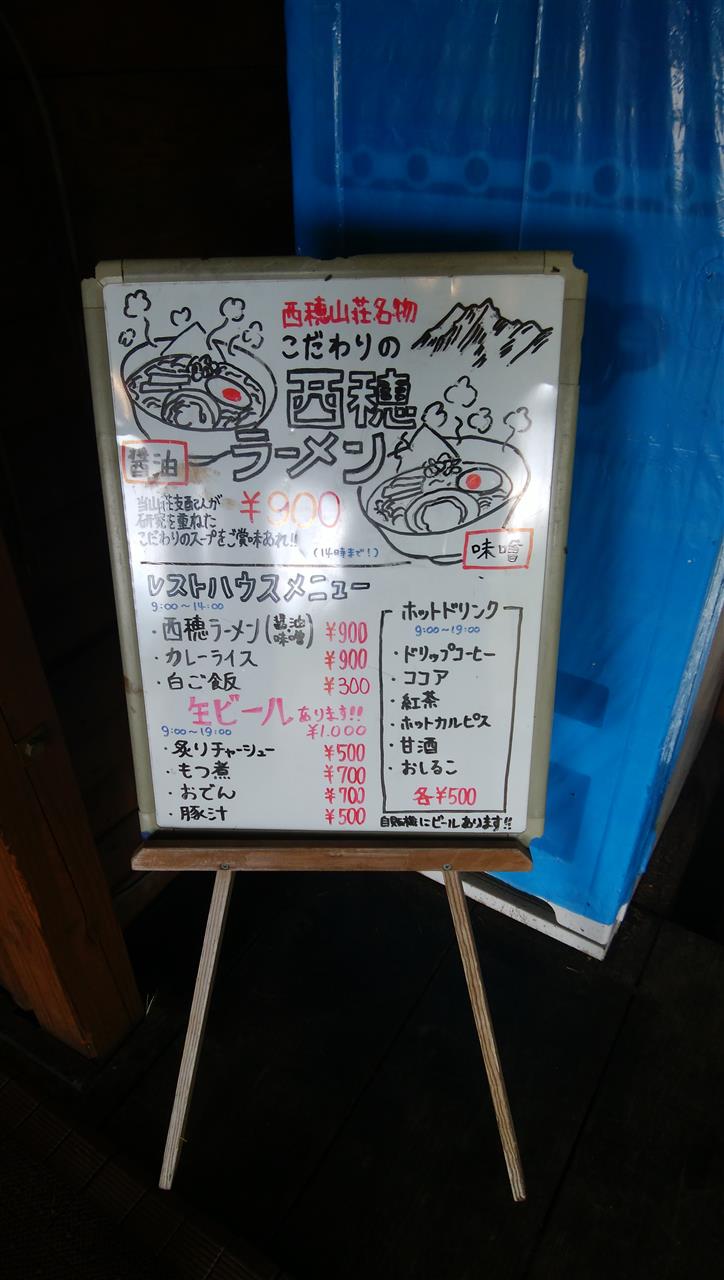 西穂山荘名物
こだわりの
西穂
ラーメン
醤油
¥900
当山荘支配人が
研究を重ねた
こだわりのスープをご賞味あれ!!
(14時まで!)
味噌
レストハウスメニュー
9:00~14:00
・西穂ラーメン(醤油 味噌) ¥900
・カレーライス ¥900
・白ご飯 ¥300
生ビールあります!!
¥1.000
9:00~19:00
・炙りチャーシュー ¥500
・もつ煮 ¥700
・おでん ¥700
・豚汁 ¥500
ホットドリンク
9:00~19:00
・ドリップコーヒー
・ココア
・紅茶
・ホットカルピス
・甘酒
・おしるこ
各¥500
自販機にビールあります!!